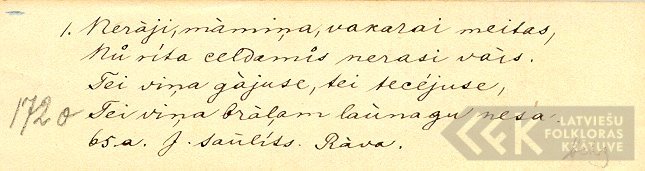 1. Neràji, màmiņa, vakarai meitas,
Nů rìta celdamås nerasi vàis.
Tei viņa gàjuse, tei tecèjuse,
1720 Tei viņa bràļam laûnagu nesa.
65.a. J. Saûlìts. Ràva.
LATVIEŠU
FOLKLORAS
KRĀTUVE